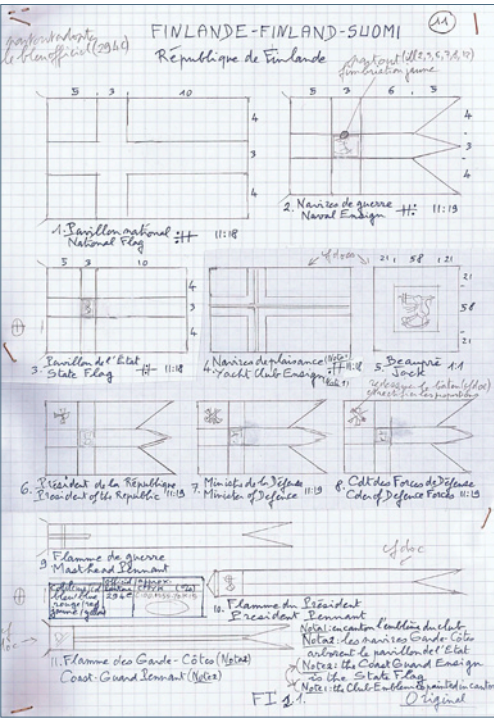 FINLANDE-FINLAND-SUOMI
11
République de Finlande
partout adopter
le bleu officiel (294c)
fimbriation jaune
5 3 10
4
3
4
5 3 6 5
4
3
4
1. Pavillon national 11:18
National Flag
2. Navires de guerre 11:19
Naval Ensign
5 3 10
4
3
4
cf docs
21 58 21
21
58
21
3. Pavillon de l'Etat 11:18
State Flag
4. Navires de plaisance (Note 1) 11:18
Yacht Club Ensign (Note 1)
5. Beaupré 1:1
Jack
6. Président de la République
President of the Republic 11:19
7. Ministre de la Défense
Minister of Defence 11:19
8. Cdt des Forces de Défense
Cder of Defence Forces 11:19
9. Flamme de guerre
Masthead Pennant
cf doc
bleu/blue 294c
rouge/red
jaune/yellow
10. Flamme du Président
President Pennant
cf
doc
11. Flamme des Garde-Côtes (Nota2)
Coast-Guard Pennant (Note2)
Nota1: en canton l'emblème du club
Nota2: les navires Garde-Côtes
arborent le pavillon de l'Etat
Note2: the Coast Guard Ensign
is the State Flag
Note1: the Club Emblem is painted in canton
FI 1.
Original